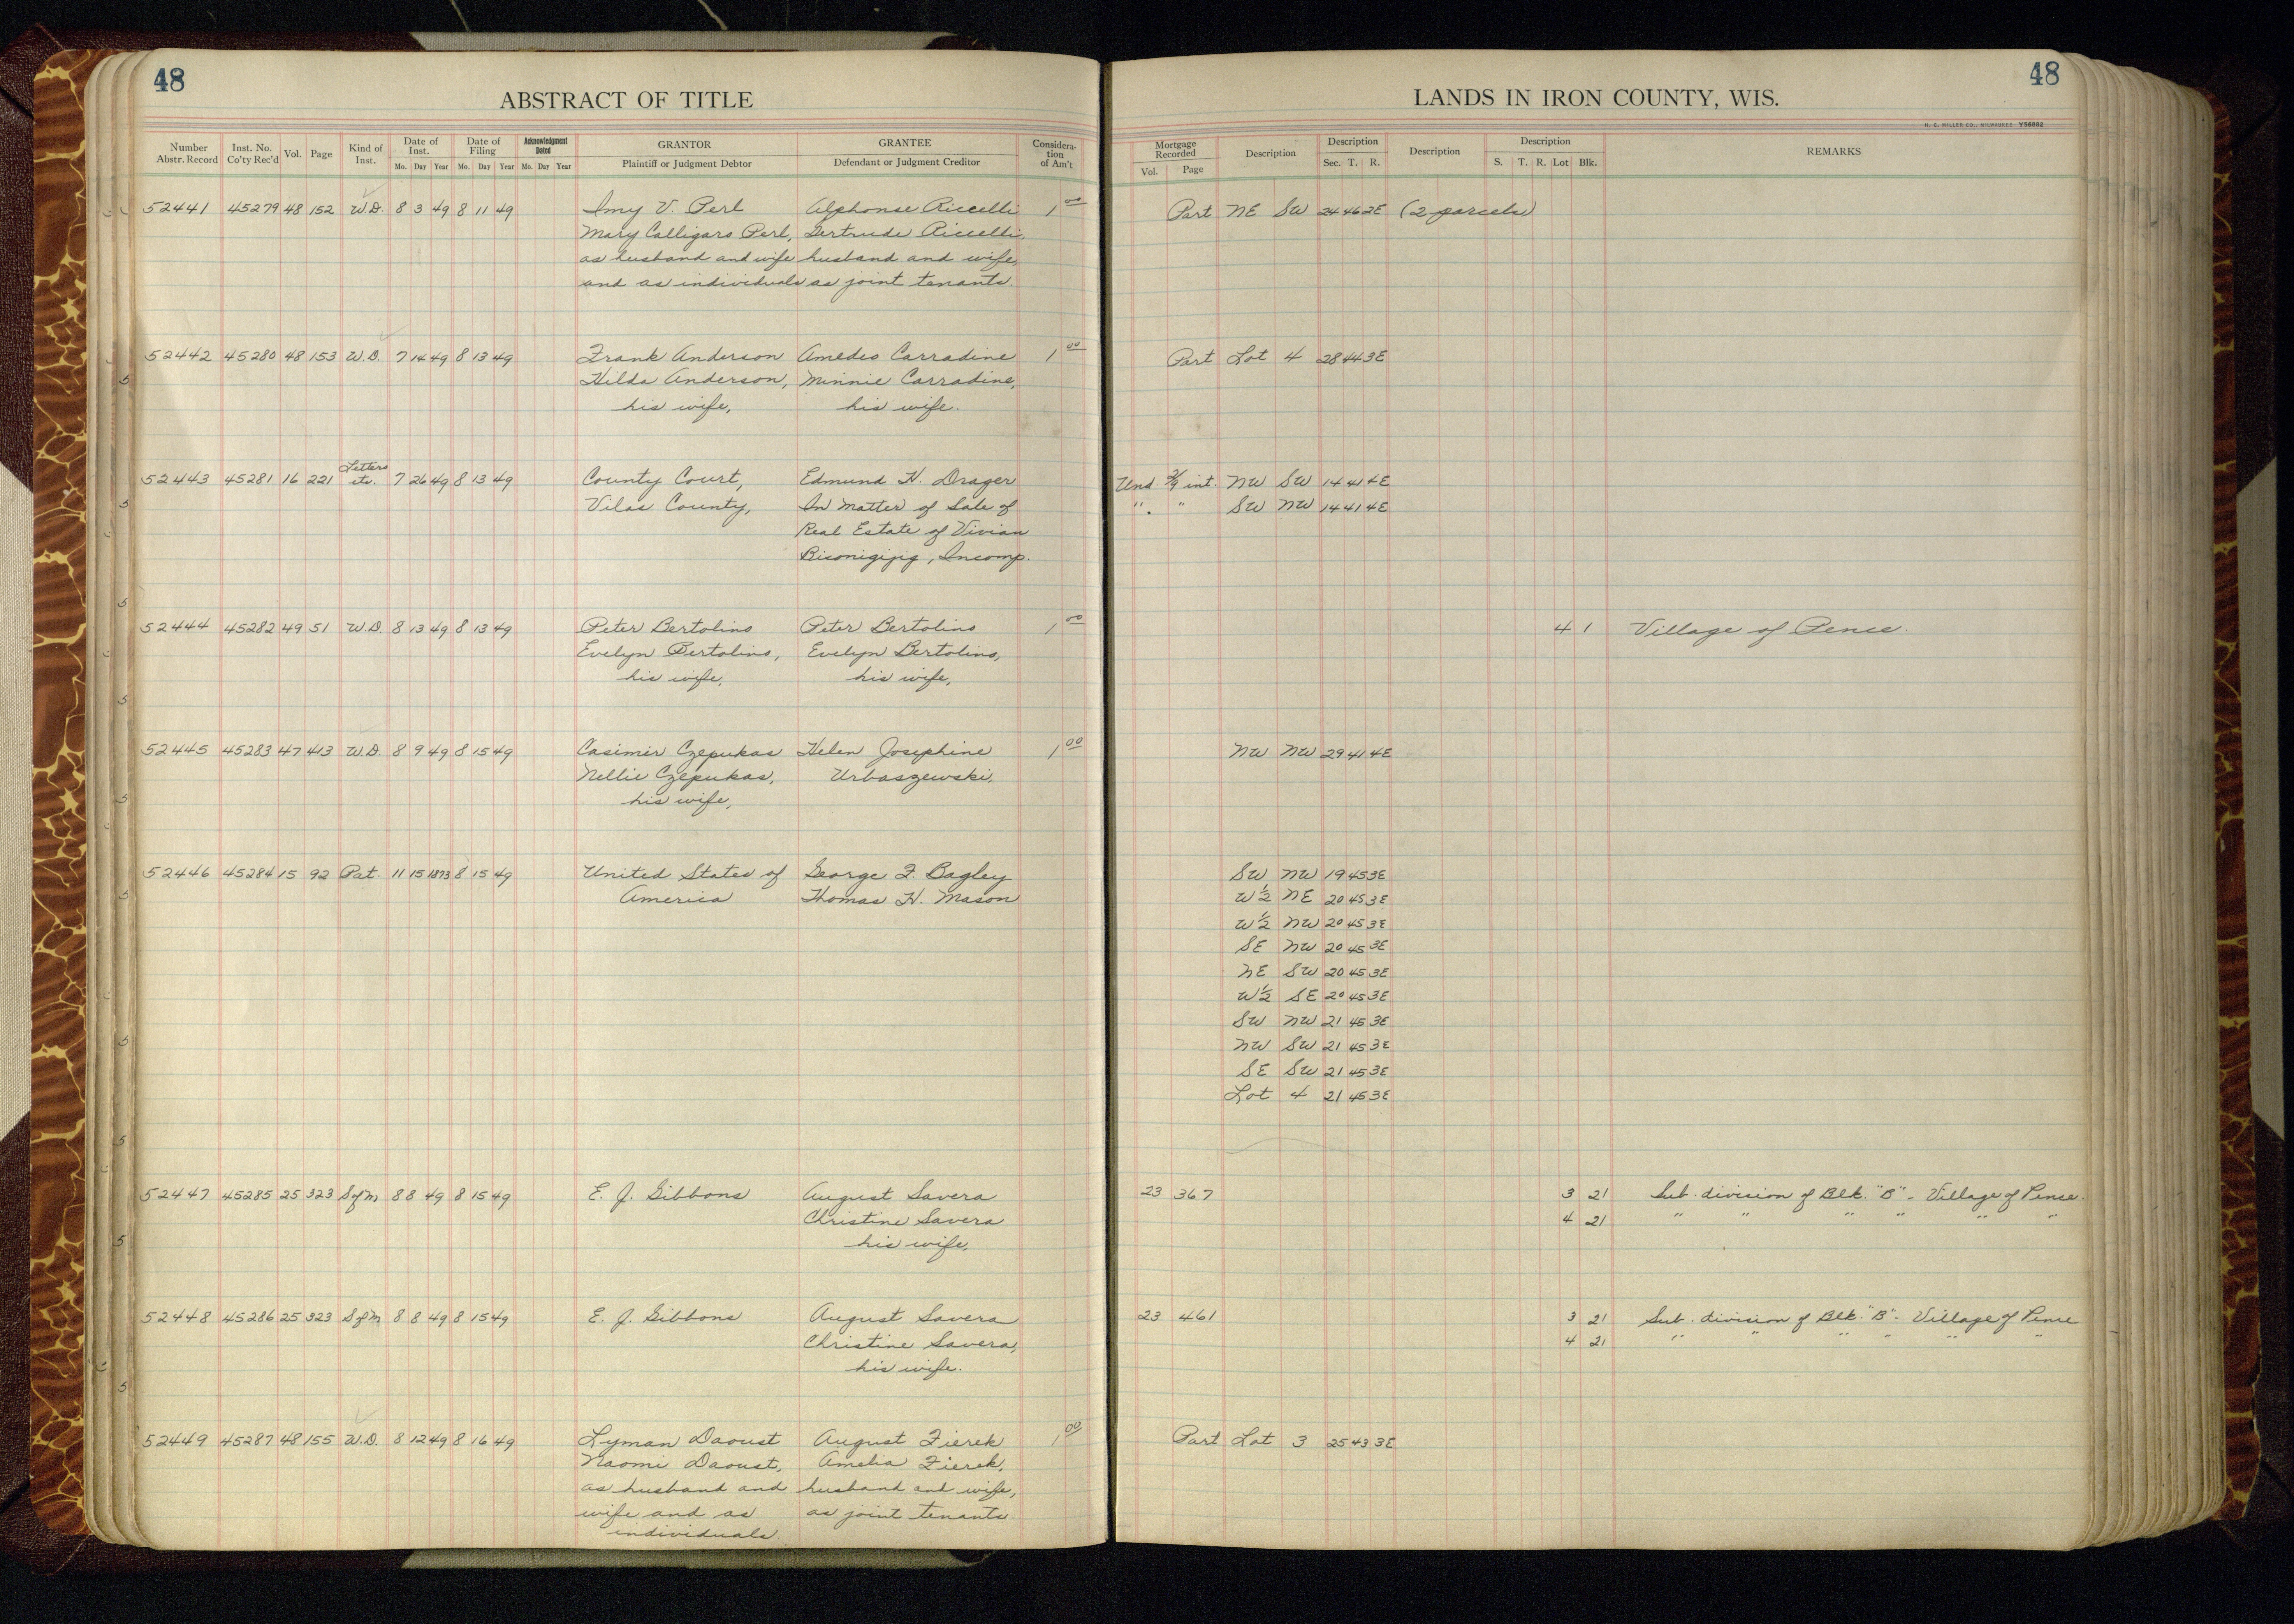 48
ABSTRACT OF TITLE
Number Abstr. Record | Inst. No. Co'ty Rec'd | Vol. | Page | Kind of Inst. | Date of Inst. Mo. Day Year | Date of Filing Mo. Day Year | Acknowledgment Dated Mo. Day Year | GRANTOR Plaintiff or Judgment Debtor | GRANTEE Defendant or Judgment Creditor | Considera-tion of Am't
48
LANDS IN IRON COUNTY, WIS.
H. C. MILLER CO., MILWAUKEE Y56862
Mortgage Recorded Vol. Page | Description | Description Sec. T. R. | Description | Description S. T. R. Lot Blk. | REMARKS
52441 45279 48 152 W.D. 8 3 49 8 11 49 Imy V. Perl Alphonse Riccelli 1 00 Part NE SW 24 46 2E (2 parcels)
Mary Calligaro Perl, Gertrude Riccelli,
as husband and wife husband and wife,
and as individuals as joint tenants.
52442 45280 48 153 W.D. 7 14 49 8 13 49 Frank Anderson Amedeo Carradine 1 00 Part Lot 4 28 44 3E
Hilda Anderson, Minnie Carradine,
his wife, his wife.
52443 45281 16 221 Letters etc. 7 26 49 8 13 49 County Court, Edmund H. Drager Und. 2/9 int. NW SW 14 41 4E
Vilas County, In Matter of Sale of " " SW NW 14 41 4E
Real Estate of Vivian
Bisonigijig, Incomp.
52444 45282 49 51 W.D. 8 13 49 8 13 49 Peter Bertolino Peter Bertolino 1 00 4 1 Village of Pence.
Evelyn Bertolino, Evelyn Bertolino,
his wife, his wife,
52445 45283 47 413 W.D. 8 9 49 8 15 49 Casimir Czepukas Helen Josephine 1 00 NW NW 29 41 4E
Nellie Czepukas, Urbaszewski,
his wife,
52446 45284 15 92 Pat. 11 15 1873 8 15 49 United States of George F. Bagley SW NW 19 45 3E
America Thomas H. Mason W½ NE 20 45 3E
W½ NW 20 45 3E
SE NW 20 45 3E
NE SW 20 45 3E
W½ SE 20 45 3E
SW NW 21 45 3E
NW SW 21 45 3E
SE SW 21 45 3E
Lot 4 21 45 3E
52447 45285 25 323 S of M, 8 8 49 8 15 49 E. J. Gibbons August Savera 23 367 3 21 Sub. division of Blk. "B" - Village of Pence.
Christine Savera 4 21 " " " " " "
his wife,
52448 45286 25 323 S of M 8 8 49 8 15 49 E. J. Gibbons August Savera 23 461 3 21 Sub. division of Blk. "B" - Village of Pence
Christine Savera, 4 21 " " " " " "
his wife.
52449 45287 48 155 W.D. 8 12 49 8 16 49 Lyman Daoust August Zierek 1 00 Part Lot 3 25 43 3E
Naomi Daoust, Amelia Zierek,
as husband and husband and wife,
wife and as as joint tenants.
individuals.